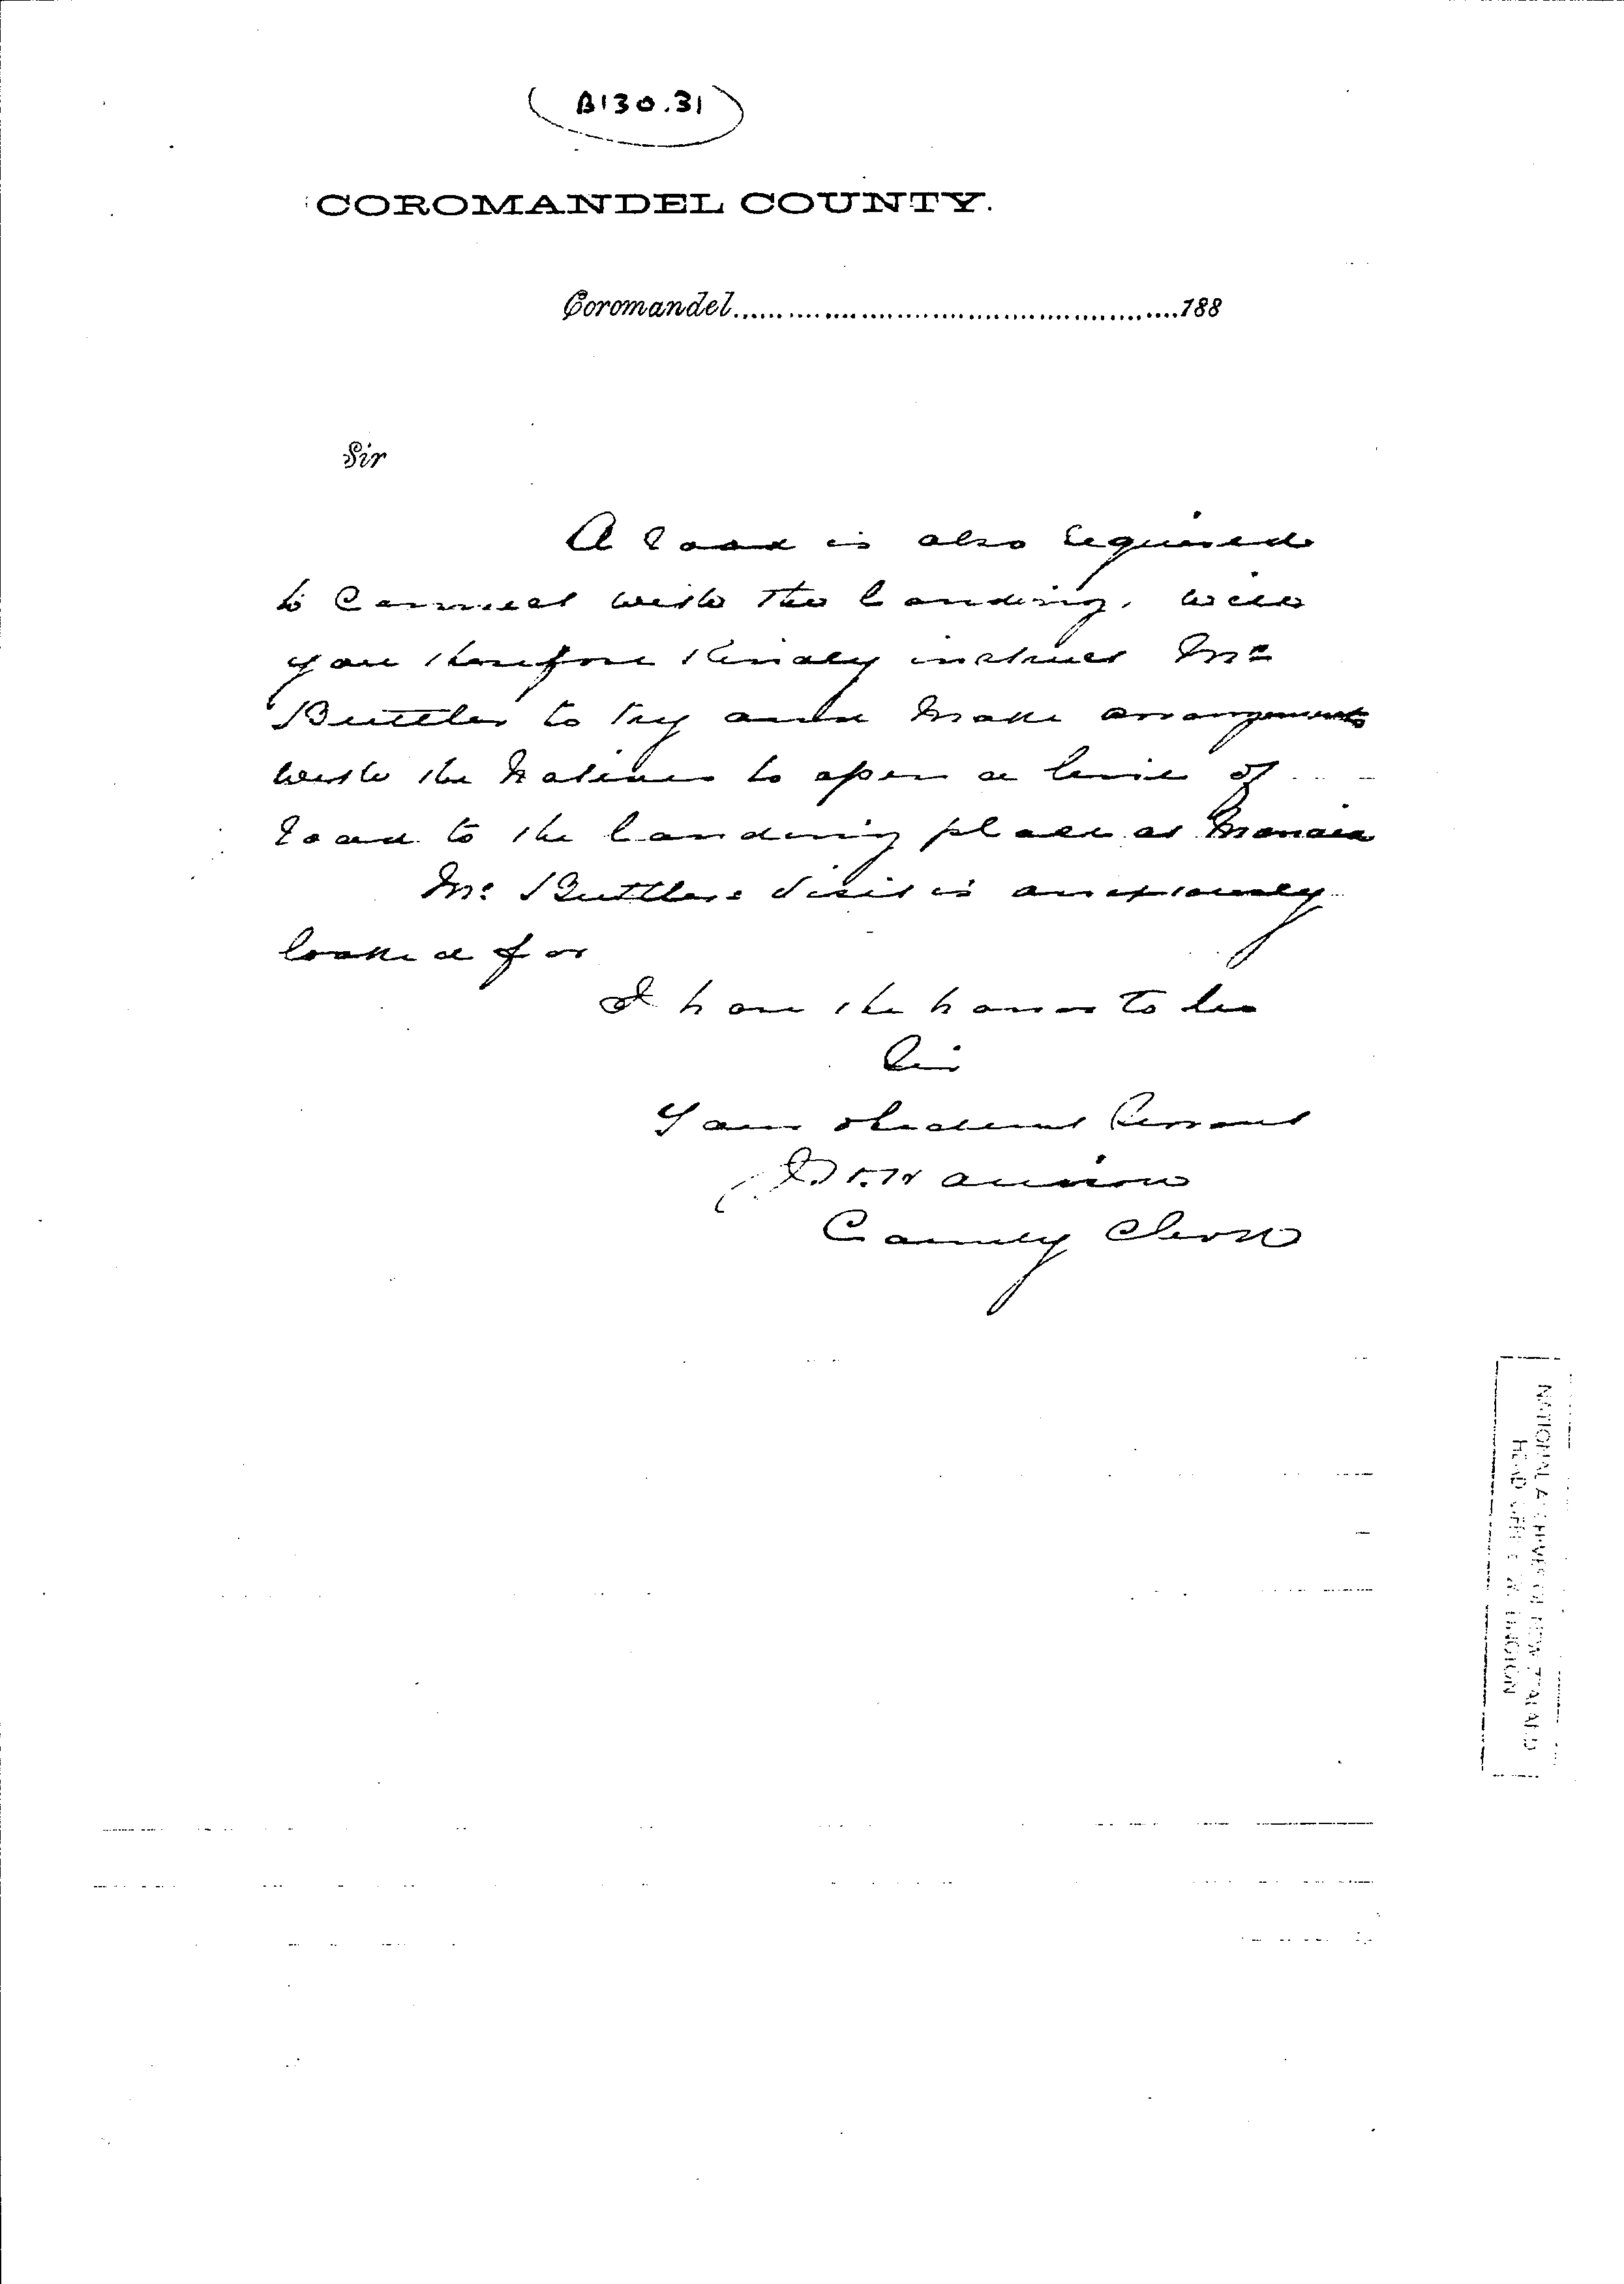 B130.31
COROMANDEL COUNTY.
Coromandel..................................................188
Sir
A road is also required
to Connect with the landing, will
you therefore Kindly instruct Mr
Buttler to try and make arrangements
with the Natives to open a line of
road to the landing place at Manaia
Mr Buttlers visit is anxiously
looked for
I have the honor to be
Sir
Your obedient Servant
County Clerk
NATIONAL ARCHIVES OF NEW ZEALAND
HEAD OFFICE WELLINGTON